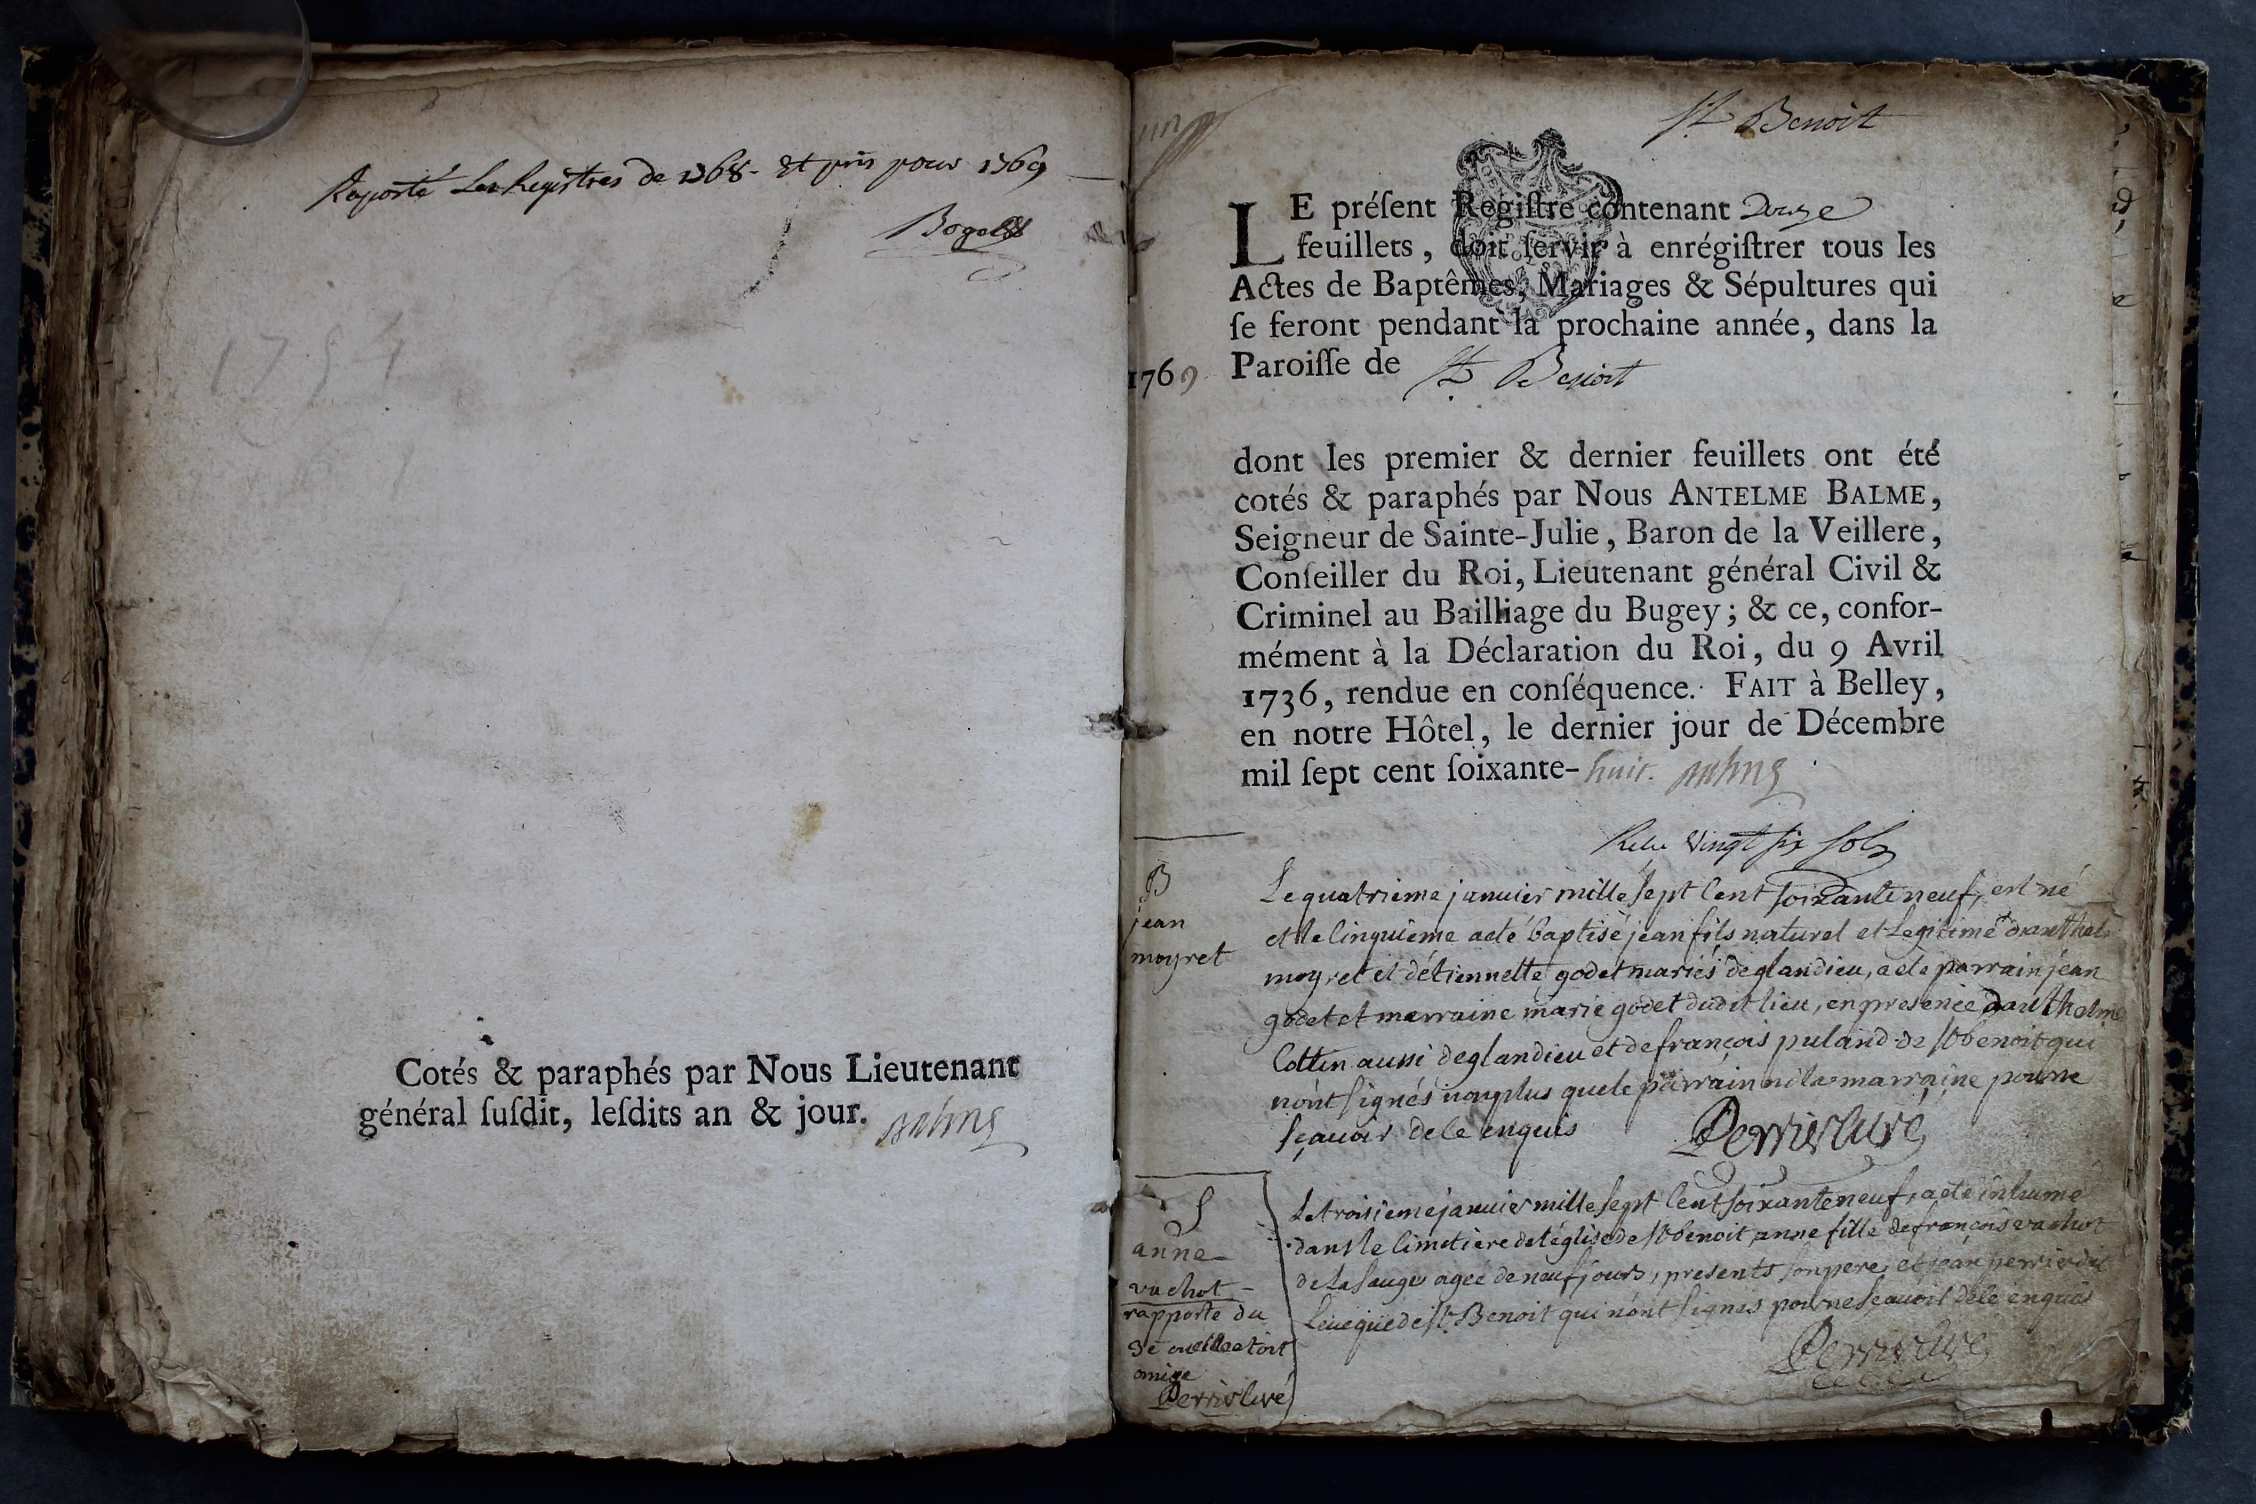 Raporté Les Registres de 1768. Et pris pour 1769
Cotés & paraphés par Nous Lieutenant
général ſuſdit, leſdits an & jour.
St Benoit
LE préſent Régiſtre contenant Douze
feuillets, doit ſervir à enrégiſtrer tous les
Actes de Baptêmes, Mariages & Sépultures qui
ſe feront pendant la prochaine année, dans la
1769 Paroiſſe de St Benoit
dont les premier & dernier feuillets ont été
cotés & paraphés par Nous ANTELME BALME,
Seigneur de Sainte-Julie, Baron de la Veillere,
Conſeiller du Roi, Lieutenant général Civil &
Criminel au Bailliage du Bugey; & ce, confor-
mément à la Déclaration du Roi, du 9 Avril
1736, rendue en conſéquence. FAIT à Belley,
en notre Hôtel, le dernier jour de Décembre
mil ſept cent ſoixante-huit.
Vingt six sols
B
jean
moyret
Le quatrieme janvier mille sept Cent soixante neuf, est né
et le Cinquieme a eté baptisé jean fils naturel et Legitime d'anthelme
moyret et d'étiennette godet mariés de glandieu, a eté parrain jean
godet et marraine marie godet dudit lieu, en presence d'anthelme
Cottin aussi de glandieu et de françois puland de St benoit qui
n'ont signés non plus que le parrain ni la marraine pour ne
sçavoir de ce enquis Perrier Curé
S
anne
vachot
rapporté du
3e
omise
Perrier Curé
Le troisieme janvier mille sept Cent soixante neuf, a eté inhumé
dans le Cimetiere de l'église de St benoit, anne fille de françois vachot
de La sauge agée de neuf jours, presents son pere, et jean perrier dit
Leveque de St Benoit qui n'ont signés pour ne sçavoir de ce enquis
Perrier Curé